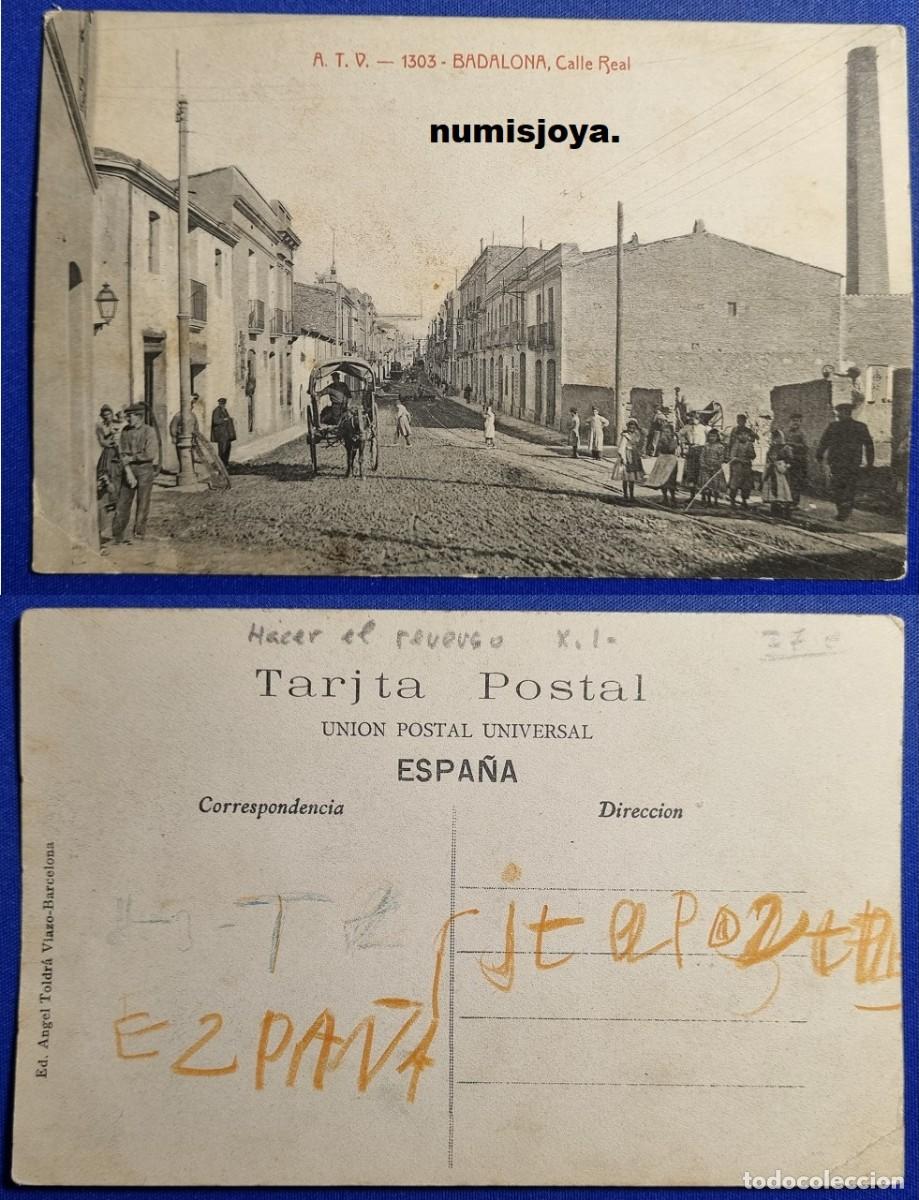 A. T. V. — 1303 - BADALONA, Calle Real
numisjoya.
Hacer el reverso X.1-
37 €
Tarjta Postal
UNION POSTAL UNIVERSAL
ESPAÑA
Correspondencia
Direccion
Ed. Angel Toldrá Viazo-Barcelona
EZPAÑA
todocoleccion